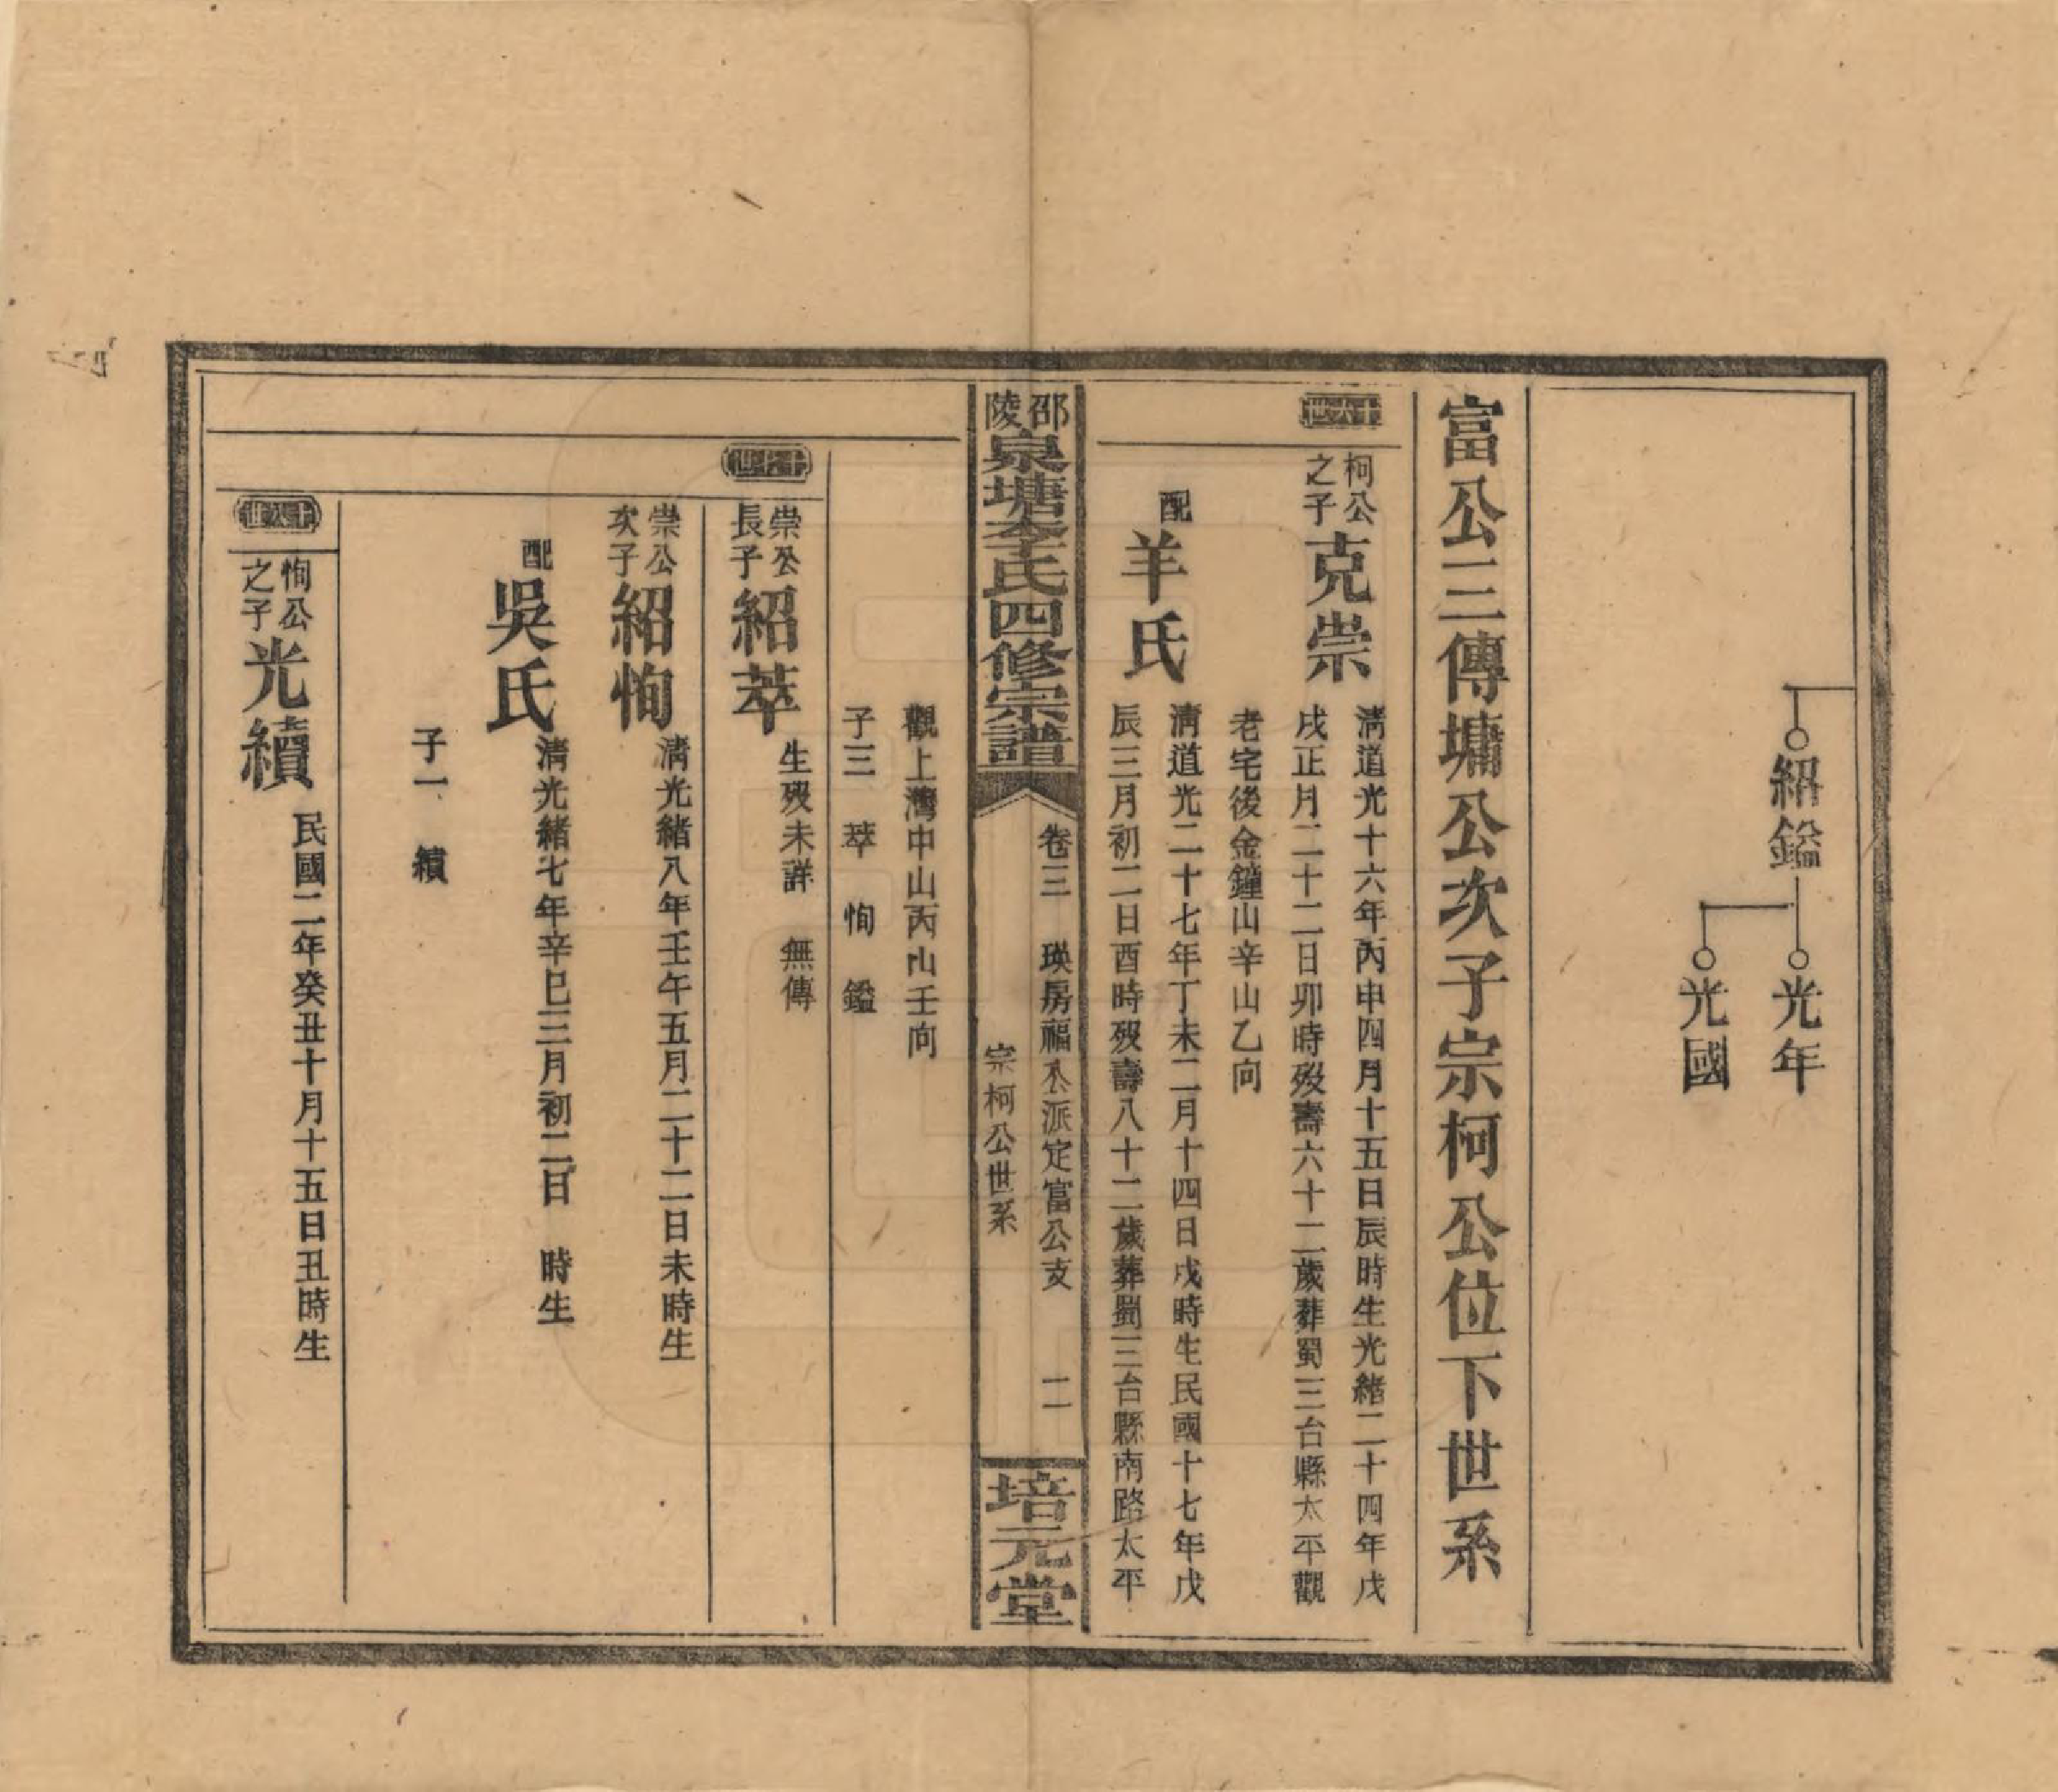 紹鎰
光年
光國
富公三傳墉公次子宗柯公位下世系
十六世
柯公之子
克崇
清道光十六年丙申四月十五日辰時生光緒二十四年戊
戌正月二十二日卯時歿壽六十二歲葬蜀三台縣太平觀
老宅後金鐘山辛山乙向
配
羊氏
清道光二十七年丁未二月十四日戌時生民國十七年戊
辰三月初二日酉時歿壽八十二歲葬蜀三台縣南路太平
邵陵
泉塘李氏四修宗譜
卷三 瑛房福公派定富公支 二
宗柯公世系
培元堂
觀上灣中山丙山壬向
子三 萃 恂 鎰
十七世
崇公長子
紹萃
生歿未詳 無傳
崇公次子
紹恂
清光緒八年壬午五月二十二日未時生
配
吳氏
清光緒七年辛巳三月初二日 時生
子一 續
十八世
恂公之子
光續
民國二年癸丑十月十五日丑時生